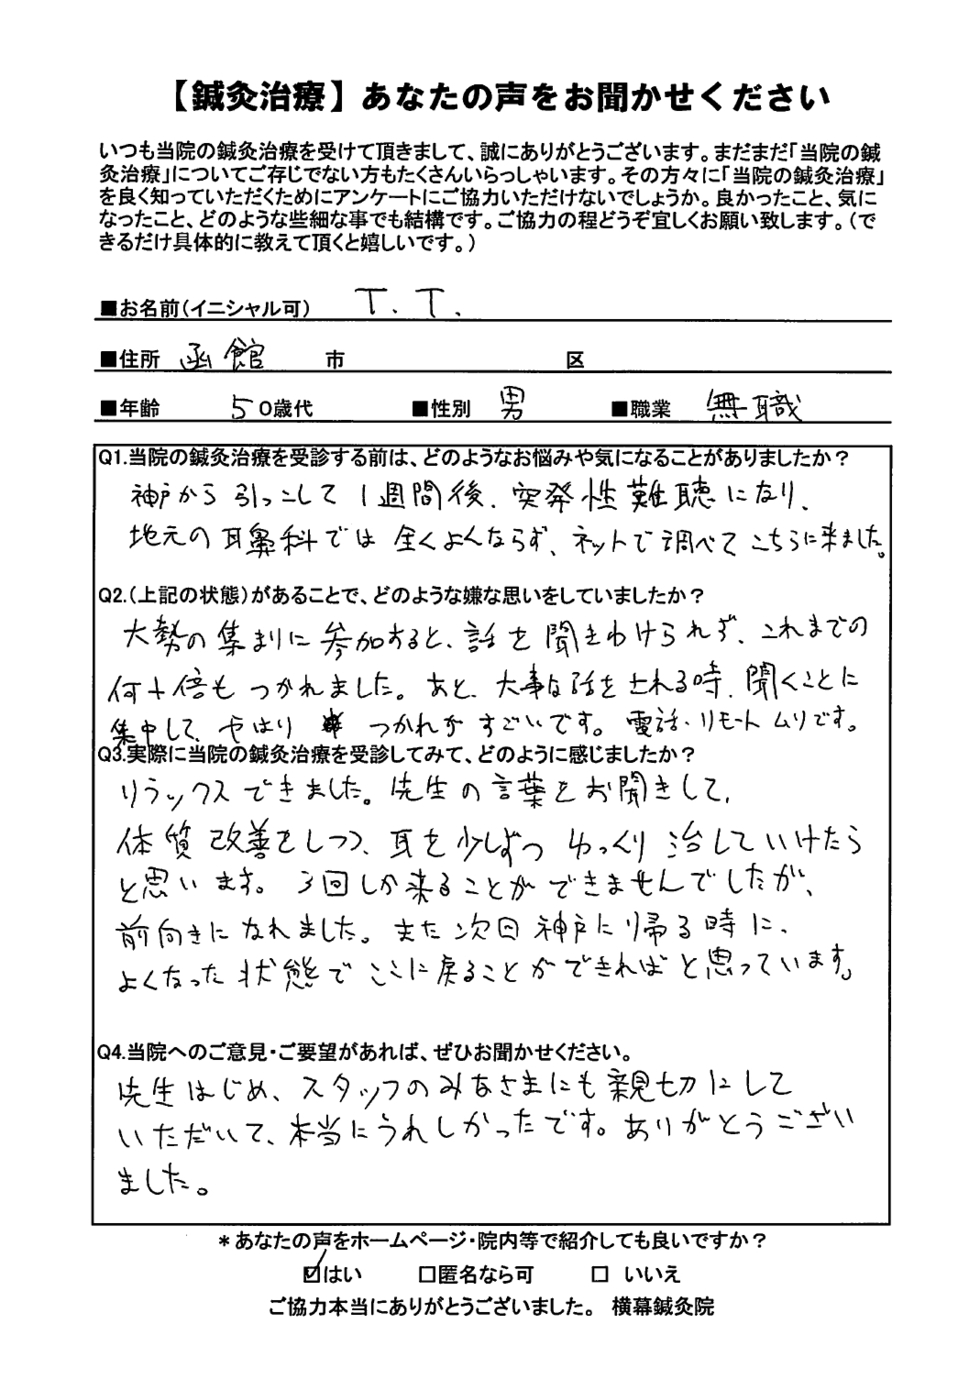 【鍼灸治療】あなたの声をお聞かせください
いつも当院の鍼灸治療を受けて頂きまして、誠にありがとうございます。まだまだ「当院の鍼
灸治療」についてご存じでない方もたくさんいらっしゃいます。その方々に「当院の鍼灸治療」
を良く知っていただくためにアンケートにご協力いただけないでしょうか。良かったこと、気に
なったこと、どのような些細な事でも結構です。ご協力の程どうぞ宜しくお願い致します。（で
きるだけ具体的に教えて頂くと嬉しいです。）
■お名前（イニシャル可） T. T.
■住所 函館 市 区
■年齢 50歳代 ■性別 男 ■職業 無職
Q1.当院の鍼灸治療を受診する前は、どのようなお悩みや気になることがありましたか？
神戸から引っこして1週間後、突発性難聴になり、
地元の耳鼻科では全くよくならず、ネットで調べてこちらに来ました。
Q2.（上記の状態）があることで、どのような嫌な思いをしていましたか？
大勢の集まりに参加すると、話を聞きわけられず、これまでの
何十倍もつかれました。あと、大事な話をされる時、聞くことに
集中して、やはり つかれがすごいです。電話・リモートムリです。
Q3.実際に当院の鍼灸治療を受診してみて、どのように感じましたか？
リラックスできました。先生の言葉をお聞きして、
体質改善をしつつ、耳を少しずつゆっくり治していけたら
と思います。3回しか来ることができませんでしたが、
前向きになれました。また次回神戸に帰る時に、
よくなった状態でここに戻ることができればと思っています。
Q4.当院へのご意見・ご要望があれば、ぜひお聞かせください。
先生はじめ、スタッフのみなさまにも親切にして
いただいて、本当にうれしかったです。ありがとうござい
ました。
＊あなたの声をホームページ・院内等で紹介しても良いですか？
☑はい □匿名なら可 □ いいえ
ご協力本当にありがとうございました。 横幕鍼灸院